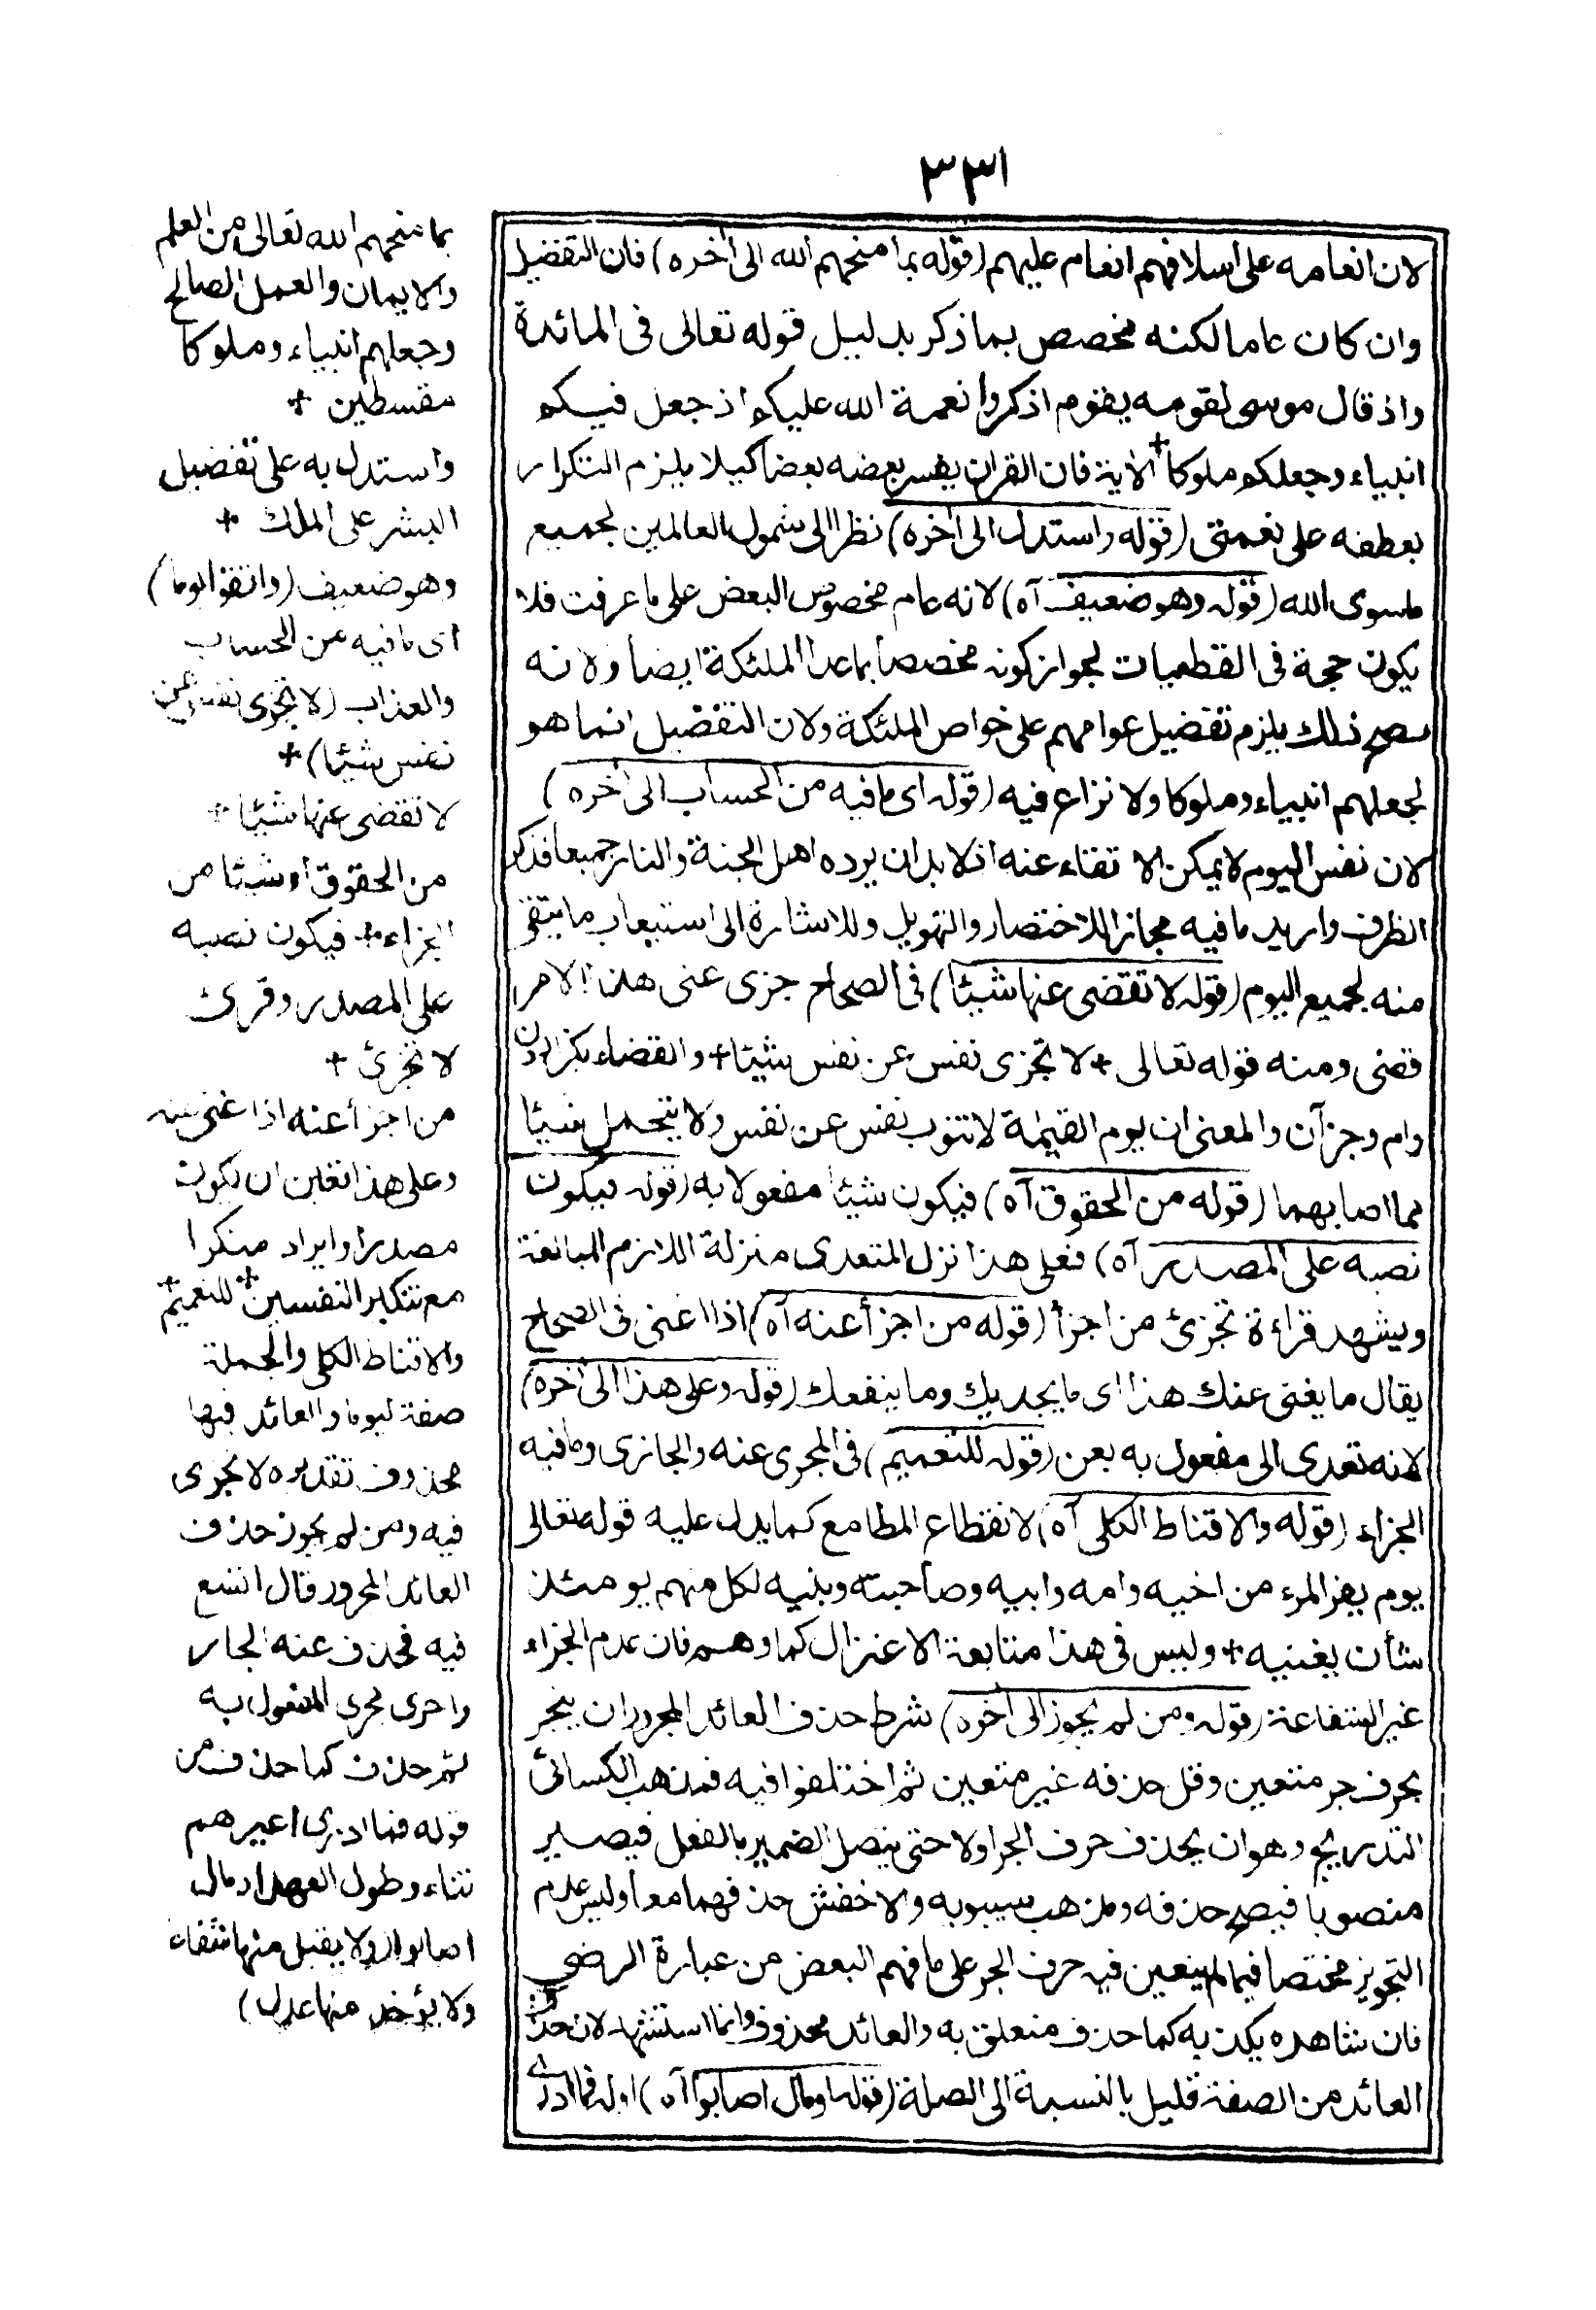 ٣٣١
لان انعامه على اسلافهم انعام عليهم (قوله بما منحهم الله الى أخره) فان التفضيل
وان كان عاما لكنه مخصص بما ذكر بدليل قوله تعالى فى المائدة
واذ قال موسى لقومه يقوم اذكروا نعمة الله عليكم اذ جعل فيكم
انبياء وجعلكم ملوكا + الاية فان القران يفسر بعضه بعضا كيلا يلزم التكرار
بعطفه على نعمتى (قوله واستدل الى أخره) نظرا الى شمول العالمين لجميع
ماسوى الله (قوله وهو ضعيف آه) لانه عام مخصوص البعض على ما عرفت فلا
يكون حجة فى القطعيات لجواز كونه مخصصا بما عدا الملئكة ايضا ولانه
صح ذلك يلزم تفضيل عوامهم على خواص الملئكة ولان التفضيل انما هو
لجعلهم انبياء وملوكا ولا نزاع فيه (قوله اى ما فيه من الحساب الى أخره)
لان نفس اليوم لا يمكن الاتقاء عنه اذ لا بد ان يرده اهل الجنة والنار جميعا فذكر
الظرف واريد ما فيه مجازا للاختصار والتهويل وللاشارة الى استيعاب ما يتقى
منه لجميع اليوم (قوله لا تقضى عنها شيئا) فى الصحاح جزى عنى هذا الامر
قضى ومنه قوله تعالى + لا تجزى نفس عن نفس شيئا + والقضاء بكزاردن
وام وجز آن والمعنى ان يوم القيمة لا تنوب نفس عن نفس ولا يتحمل شيئا
مما اصابهما (قوله من الحقوق آه) فيكون شيئا مفعولا به (قوله فيكون
نصبه على المصدر آه) فعلى هذا نزل المتعدى منزلة اللازم للمبالغة
ويشهد قراءة تجزئ من اجزأ (قوله من اجزأ عنه آه) اذا اغنى فى الصحاح
يقال ما يغنى عنك هذا اى ما يجديك وما ينفعك (قوله وعلى هذا الى أخره)
لانه تعدى الى مفعول به بعن (قوله للتعميم) فى المجزى عنه والجازى وما فيه
الجزاء (قوله والاقناط الكلى آه) لانقطاع المطامع كما يدل عليه قوله تعالى
يوم يفر المرء من اخيه وامه وابيه وصاحبته وبنيه لكل منهم يومئذ
شأن يغنيه + وليس فى هذا متابعة الاعتزال كما وهم فان عدم الجزاء
غير الشفاعة (قوله ومن لم يجوز الى أخره) شرط حذف العائد المجرور ان ينجر
بحرف جر متعين وقل حذفه غير متعين ثم اختلفوا فيه فمذهب الكسائى
التدريج وهو ان يحذف حرف الجر اولا حتى يتصل الضمير بالفعل فيصير
منصوبا فيصح حذفه ومذهب سيبويه والاخفش حذفهما معا وليس عدم
التجويز مختصا فيما لم يتعين فيه حرف الجر على ما فهم البعض من عبارة الرضى
فان شاهده يكذبه كما حذف متعلق به والعائد محذوف وانما استشهد لان حذف
العائد من الصفة قليل بالنسبة الى الصلة (قوله او مال اصابوا آه) اوله فما ادرى
بما منحهم الله تعالى من العلم
والايمان والعمل الصالح
وجعلهم انبياء وملوكا
مقسطين +
واستدل به على تفضيل
البشر على الملك +
وهو ضعيف (واتقوا يوما)
اى ما فيه من الحساب
والعذاب (لا تجزى نفس عن
نفس شيئا) +
لا تقضى عنها شيئا +
من الحقوق او شيئا من
الجزاء + فيكون نصبه
على المصدر وقرئ
لا تجزئ +
من اجزأ عنه اذا غنى عنه
وعلى هذا تعين ان يكون
مصدرا وايراده منكرا
مع تنكير النفسين + للتعميم +
والاقناط الكلى والجملة
صفة ليوما والعائد فيها
محذوف تقديره لا تجزى
فيه ومن لم يجوز حذف
العائد المجرور قال اتسع
فيه فحذف عنه الجار
واجرى مجرى المفعول به
ثم حذف كما حذف من
قوله فما ادرى اغيرهم
تناء وطول العهد او مال
اصابوا (ولا يقبل منها شفاعة
ولا يؤخذ منها عدل)